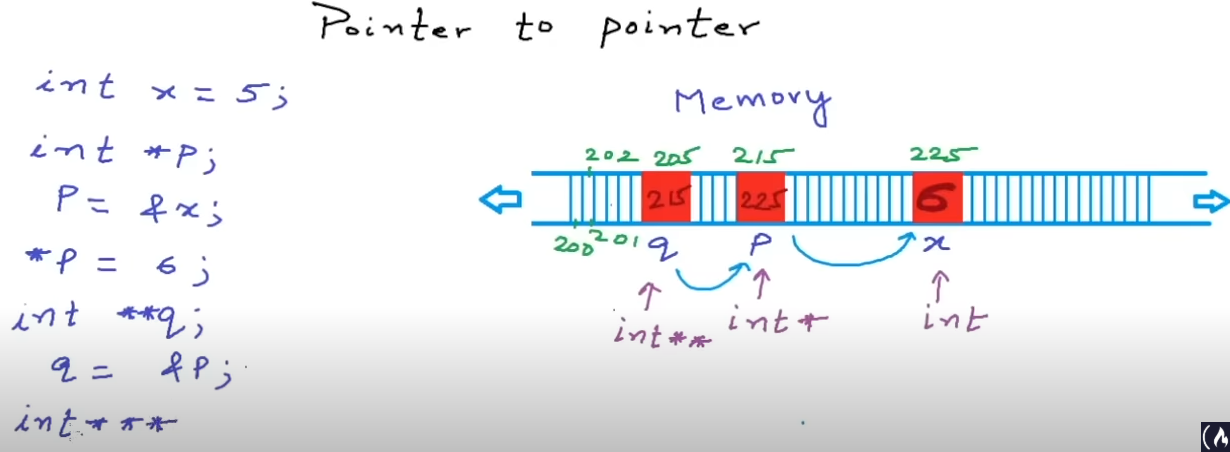 Pointer to pointer
int x = 5;
int *p;
p = &x;
*p = 6;
int **q;
q = &p;
int***
Memory
202 205 215 225
215 225 6
200 201 q p x
int** int* int